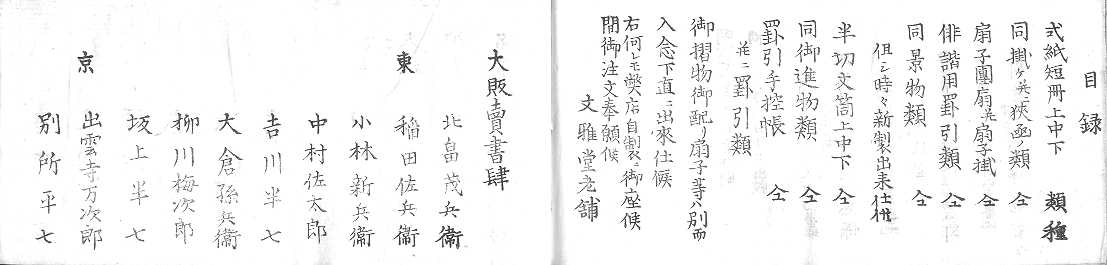 目録
式紙短冊上中下 類種
同掛ケ并ニ狭函ノ類 仝
扇子團扇并扇子掛 仝
俳諧用罫引類 仝
同景物類 仝
但シ時々新製出来仕候
半切文筒上中下 仝
同御進物類 仝
罫引手控帳 仝
并ニ罫引類
御摺物御配リ扇子等ハ別而
入念下直ニ出來仕候
右何レモ獘店自製ニ御座候
間御注文奉願候
文雅堂老舗
大販賣書肆
東
北畠茂兵衞
稲田佐兵衞
小林新兵衞
中村佐太郎
吉川半七
大倉孫兵衞
柳川梅次郎
坂上半七
京
出雲寺万次郎
別所平七